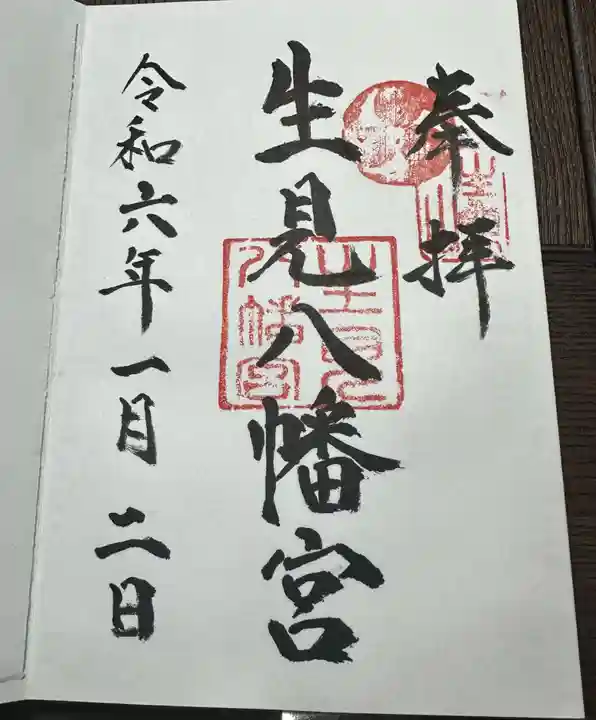 奉拝
生見八幡宮
令和六年一月二日
生見八幡宮